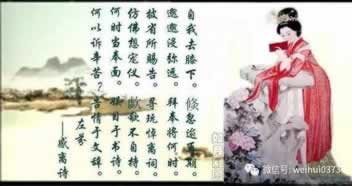 自我去膝下，倏忽逾再期。
邈邈浸弥远，拜奉将何时。
披省所赐告，寻玩悼离词。
仿佛想容仪，欷歔不自持。
何时当奉面，娱目于书诗。
何以诉辛苦？告情于文辞。
左芬
——感离诗
微信号: weihui0373